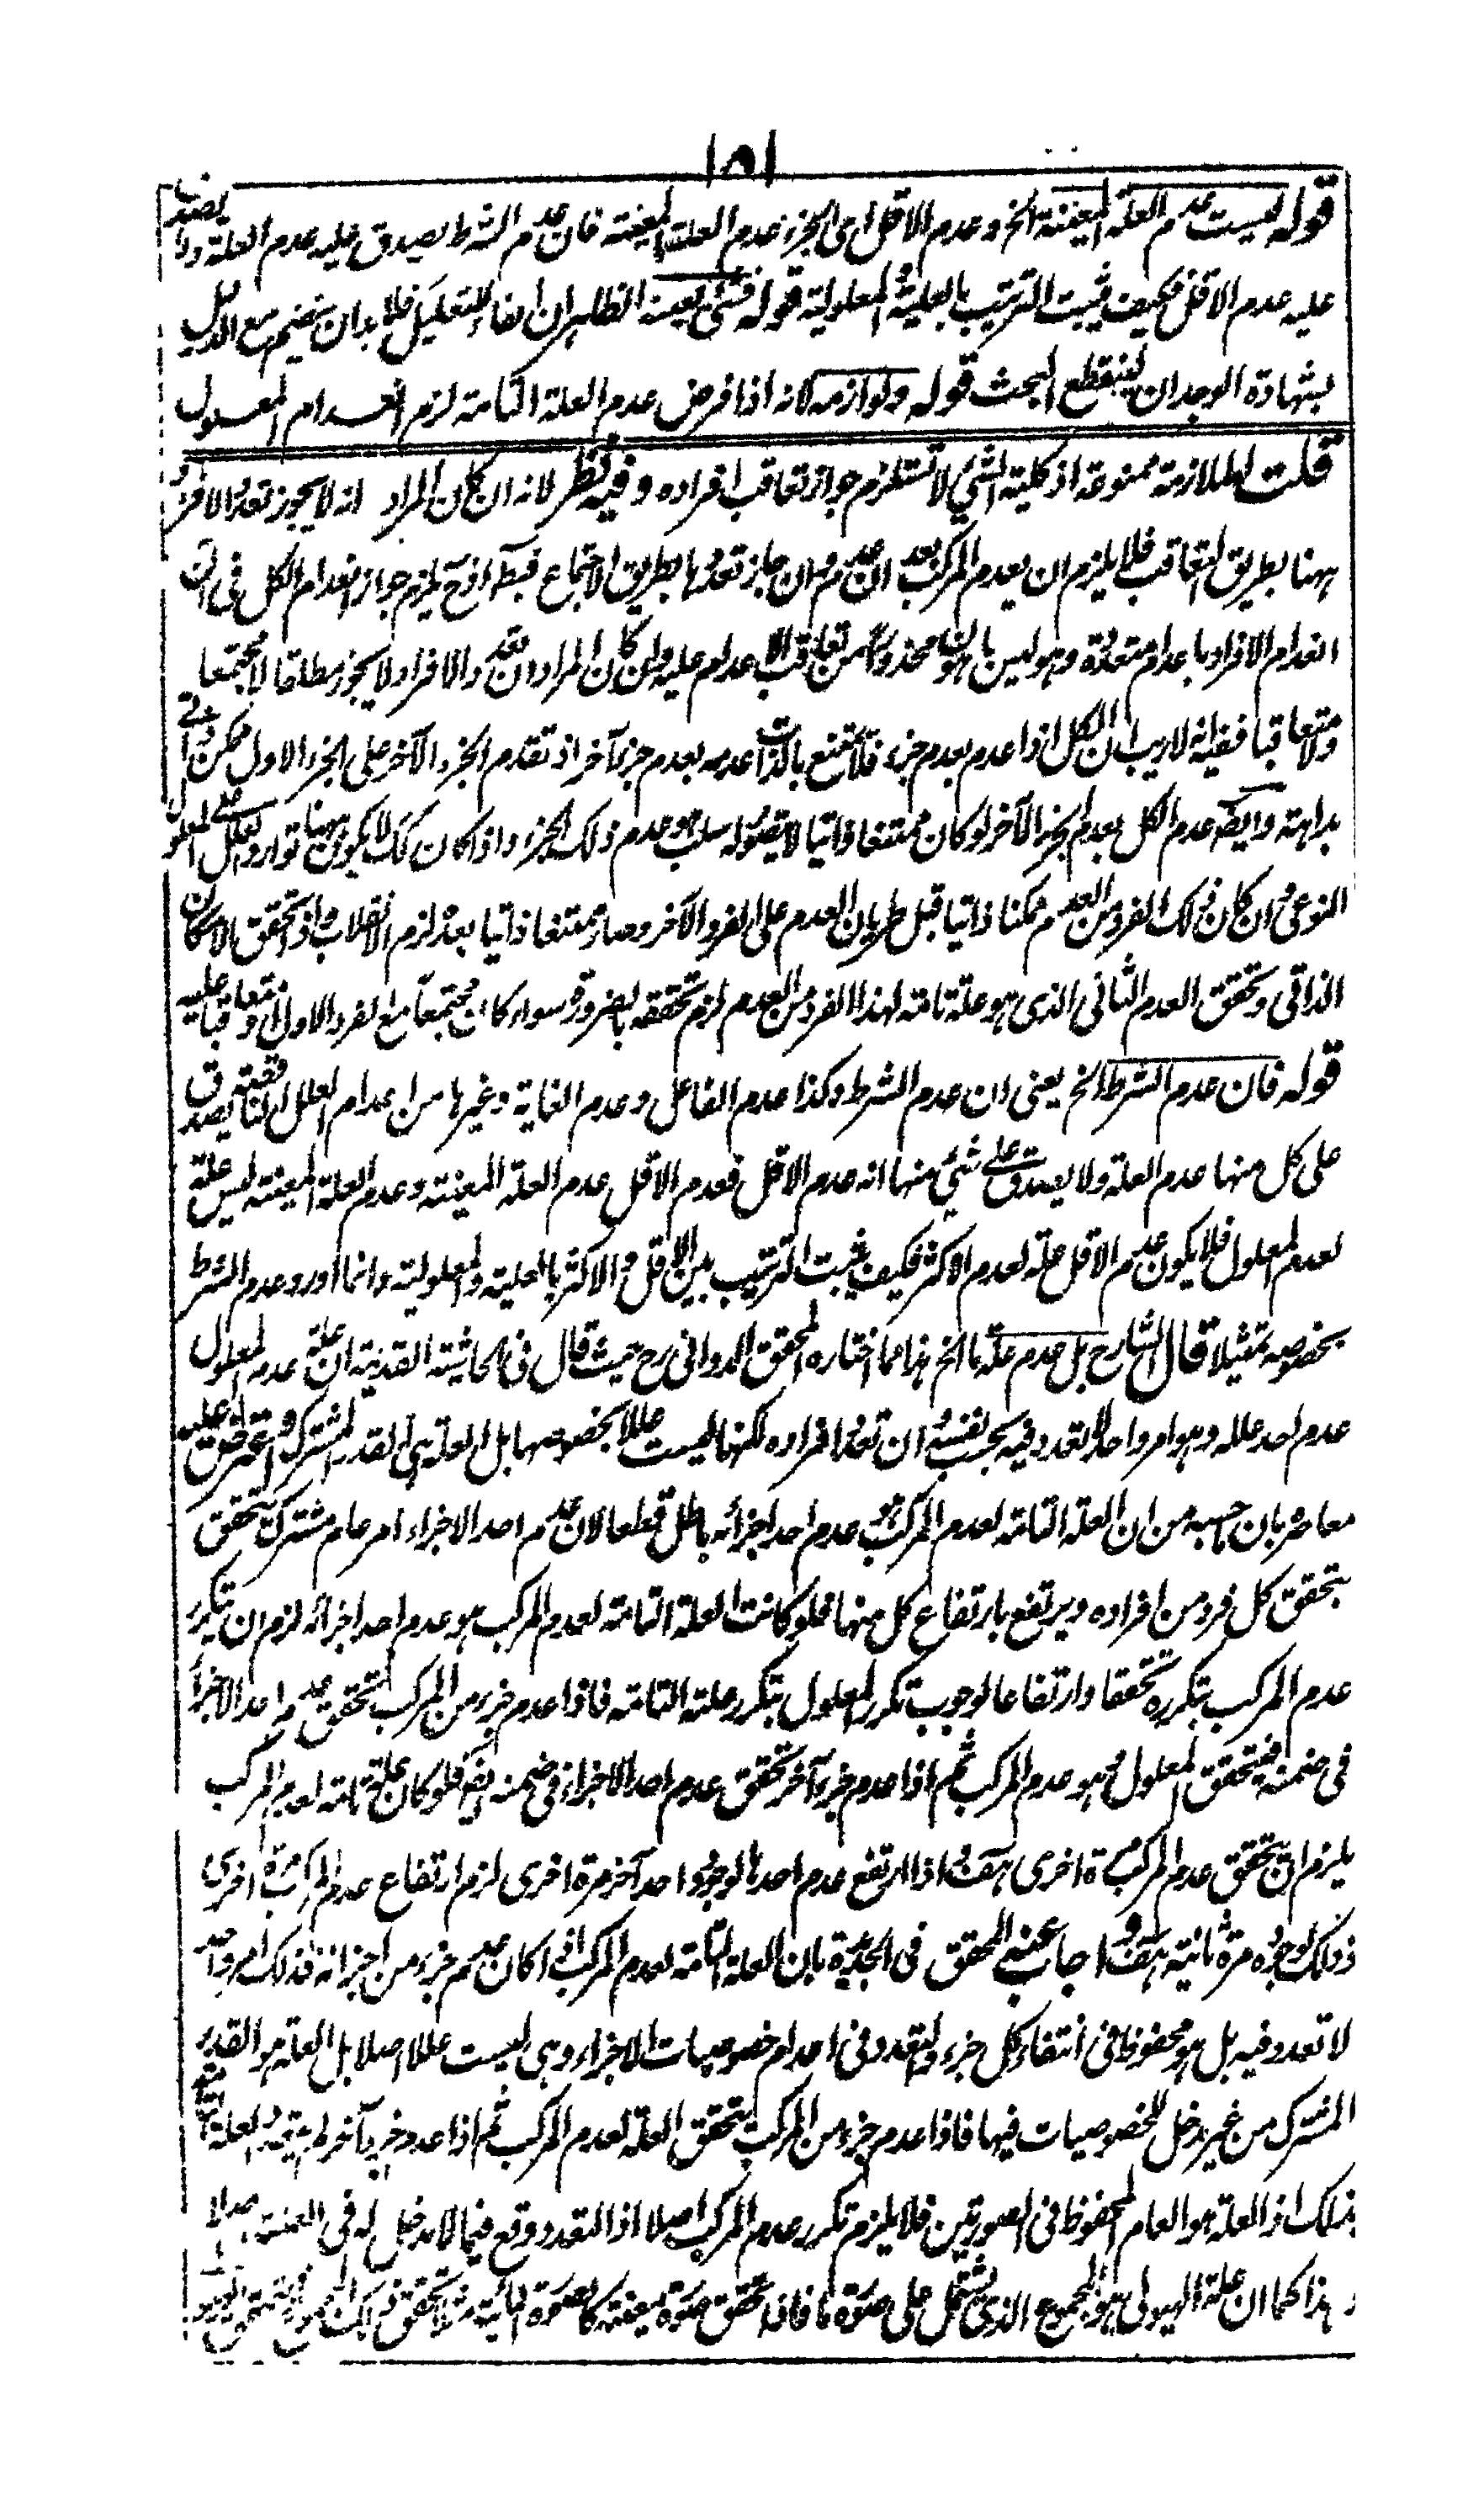 ١٥١
قوله ليست عدم العلة المعينة الخ وعدم الاقل اى الجزء عدم العلة المعينة فان عدم الشرط يصدق عليه عدم العلة ولا يصدق
عليه عدم الاقل فكيف يثبت الترتيب بالعلية والمعلولية قوله فشئ بعينه الظاهر ان الفاء للتعليل فلا بد ان ينضم مع الدليل
بشهادة الوجدان لينقطع البحث قوله ولوازمه لانه اذا فرض عدم العلة التامة لزم انعدام المعلول
قلت الملازمة ممنوعة اذ كلية الشئ لا تستلزم جواز تعاقب افراده وفيه نظر لانه ان كان المراد انه لا يجوز تعدد الافراد
ههنا بطريق التعاقب فلا يلزم ان يعدم المركب بعد ان عدم وان جاز تعددها بطريق الاجتماع اذ ح يلزم جواز انعدام الكل فى آن
انعدام الافراد باعدام متعددة وهو ليس باهون محذورا من تعاقب الاعدام عليه وان كان المراد ان تعدد الافراد لا يجوز مطلقا لا مجتمعا
ولا متعاقبا ففيه انه لا ريب ان الكل اذا عدم بعدم جزء فلا يمتنع بالذات عدمه بعدم جزء آخر اذ تقدم الجزء الآخر على الجزء الاول ممكن
بداهة وايضا عدم الكل بعدم الجزء الآخر لو كان ممتنعا ذاتيا لا يتصور له سلب هو عدم ذلك الجزء واذا كان كك لا يكون ههنا توارد العلل على المعلول
النوعى وان كان ذلك الفرد من العدم ممكنا ذاتيا قبل طريان العدم على الفرد الآخر وصار ممتنعا ذاتيا بعده لزم الانقلاب واذ تحقق الامكان
الذاتى وتحقق العدم الثانى الذى هو علة تامة لهذا الفرد من العدم لزم تحققه بالضرورة سواء كان مجتمعا مع الفرد الاول او متعاقبا عليه
قوله فان عدم الشرط الخ يعنى ان عدم الشرط وكذا عدم الفاعل وعدم الغاية وغيرها من اعدام العلل الناقصة يصدق
على كل منها عدم العلة ولا يصدق على شئ منها انه عدم الاقل فعدم الاقل عدم العلة المعينة وعدم العلة المعينة ليس علة
لعدم المعلول فلا يكون عدم الاقل علة لعدم الاكثر فكيف يثبت الترتيب بين الاقل والاكثر بالعلية والمعلولية وانما اورد عدم الشرط
بخصوصه تمثيلا قال الشارح بل عدم علة ما الخ هذا مما اختاره المحقق الدوانى رح حيث قال فى الحاشية القديمة ان علة عدم المعلول
عدم احد علله وهو امر واحد لا تعدد فيه بحسب نفسه وان تعدد افراده لكنها ليست عللا بخصوصها بل العلة هى القدر المشترك واعترض عليه
معاصره بان ما حسبه من ان العلة التامة لعدم المركب هو عدم احد اجزائه باطل قطعا لان عدم احد الاجزاء امر عام مشترك يتحقق
بتحقق كل فرد من افراده ويرتفع بارتفاع كل منها فلو كانت العلة التامة لعدم المركب هو عدم احد اجزائه لزم ان يتكرر
عدم المركب بتكرره تحققا وارتفاعا لوجوب تكرر المعلول بتكرر علته التامة فاذا عدم جزء من المركب تحقق عدم احد الاجزاء
فى ضمنه فيتحقق المعلول وهو عدم المركب ثم اذا عدم جزء آخر تحقق عدم احد الاجزاء فى ضمنه ايضا فلو كان علة تامة لعدم المركب
يلزم ان يتحقق عدم المركب مرة اخرى هف واذا ارتفع عدم احدها لوجود احد آخر مرة اخرى لزم ارتفاع عدم المركب مرة اخرى
وذلك وجوده مرة ثانية هف واجاب عنه المحقق فى الجديدة بان العلة التامة لعدم المركب اذا كان عدم جزء من اجزائه فذلك امر واحد
لا تعدد فيه بل هو محفوظ فى انتفاء كل جزء والتعدد فى اعدام خصوصيات الاجزاء وهى ليست عللا اصلا بل العلة هو القدر
المشترك من غير دخل للخصوصيات فيها فاذا عدم جزء من المركب يتحقق العلة لعدم المركب ثم اذا عدم جزء آخر لم يتجدد العلة
بذلك اذ العلة هو العام المحفوظ فى الصورتين فلا يلزم تكرر عدم المركب اصلا اذ التعدد وقع فيما لا مدخل له فى العلية اصلا
وهذا كما ان علة الهيولى هو المجموع الذى يشتمل على صورة ما فاذا تحقق صورة معينة كالصورة المائية مثلا تحقق ذلك المجموع